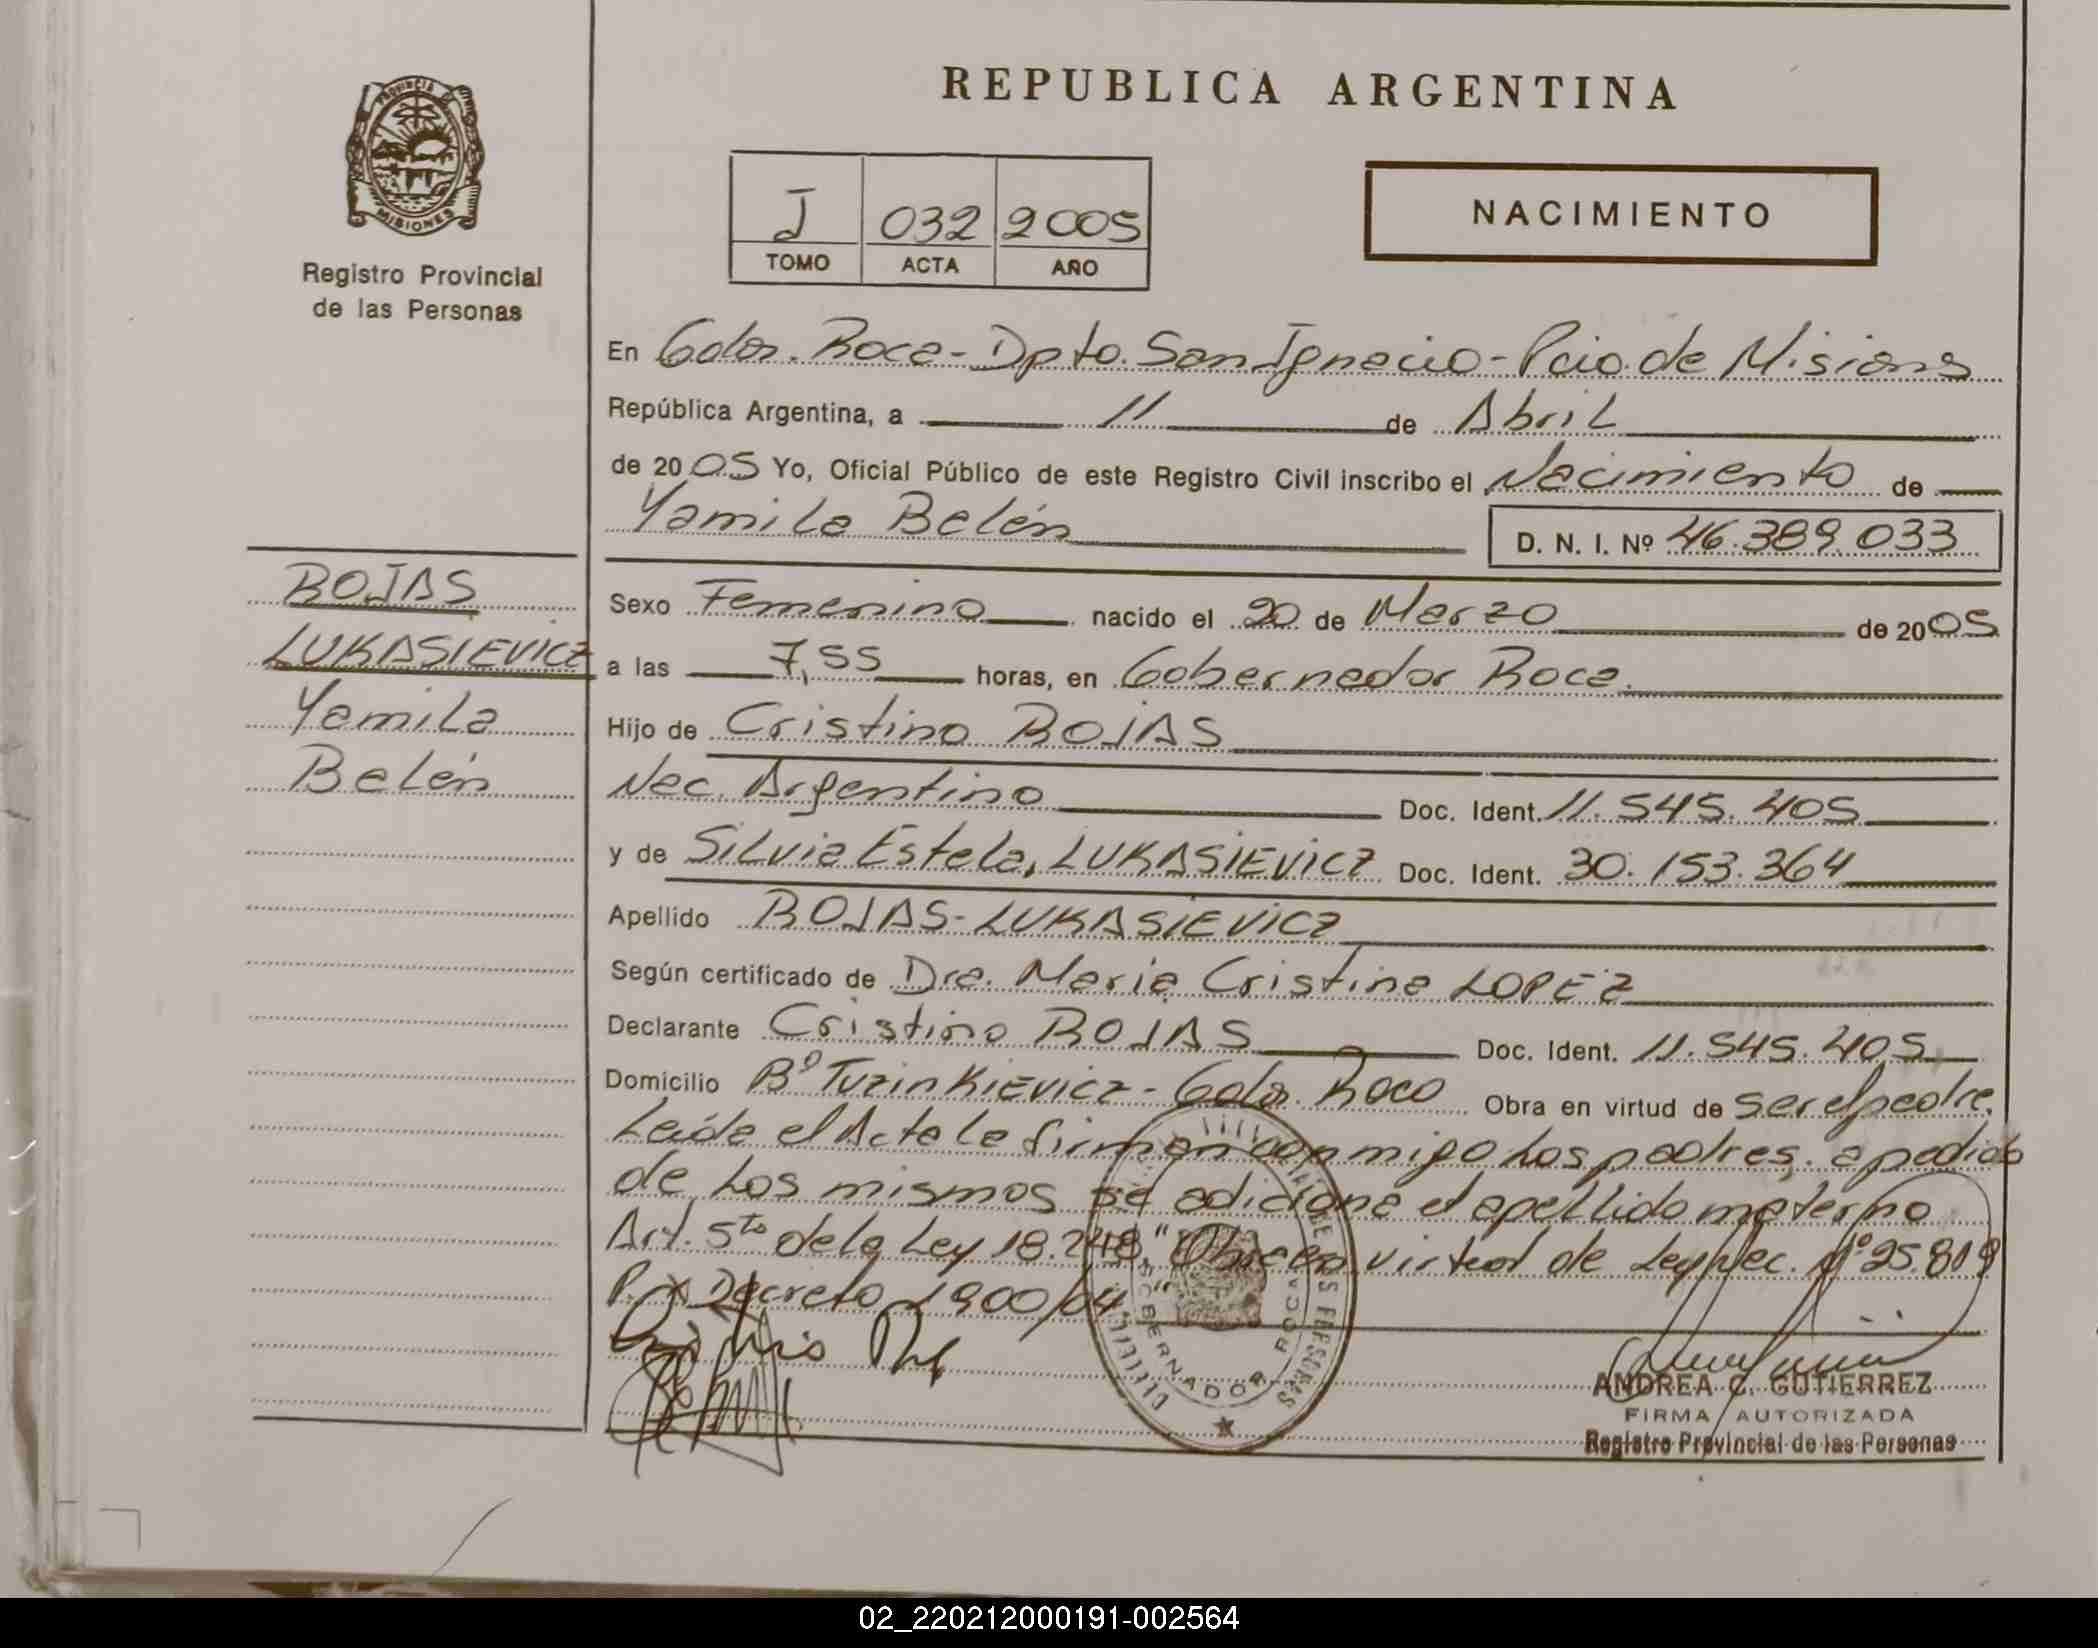 REPUBLICA ARGENTINA
PROVINCIA DE
MISIONES
Registro Provincial
de las Personas
J 032 2005
TOMO ACTA AÑO
NACIMIENTO
En Gdor. Roca - Dpto. San Ignacio - Pcia. de Misiones
República Argentina, a 11 de Abril
de 2005 Yo, Oficial Público de este Registro Civil inscribo el Nacimiento de
Yamila Belén
D. N. I. Nº 46.389.033
ROJAS
LUKASIEVICZ
Yamila
Belén
Sexo Femenino nacido el 20 de Marzo de 2005
a las 7,55 horas, en Gobernador Roca.
Hijo de Cristino ROJAS
Nac. Argentino Doc. Ident. 11.545.405
y de Silvia Estela, LUKASIEVICZ Doc. Ident. 30.153.364
Apellido ROJAS-LUKASIEVICZ
Según certificado de Dra. Maria Cristina LOPEZ
Declarante Cristino ROJAS Doc. Ident. 11.545.405
Domicilio Bº TuzinKievicz - Gdor. Roca Obra en virtud de ser el padre.
Leída el Acta la firman conmigo Los padres, a pedido
de Los mismos se adiciona el apellido materno
Art. 5to de la Ley 18.248, "Obra en virtud de Ley Nac. Nº 25.819
Decreto 1900/04
DE LAS PERSONAS
GOBERNADOR ROCA
ANDREA C. GUTIERREZ
FIRMA AUTORIZADA
Registro Provincial de las Personas
02_220212000191-002564